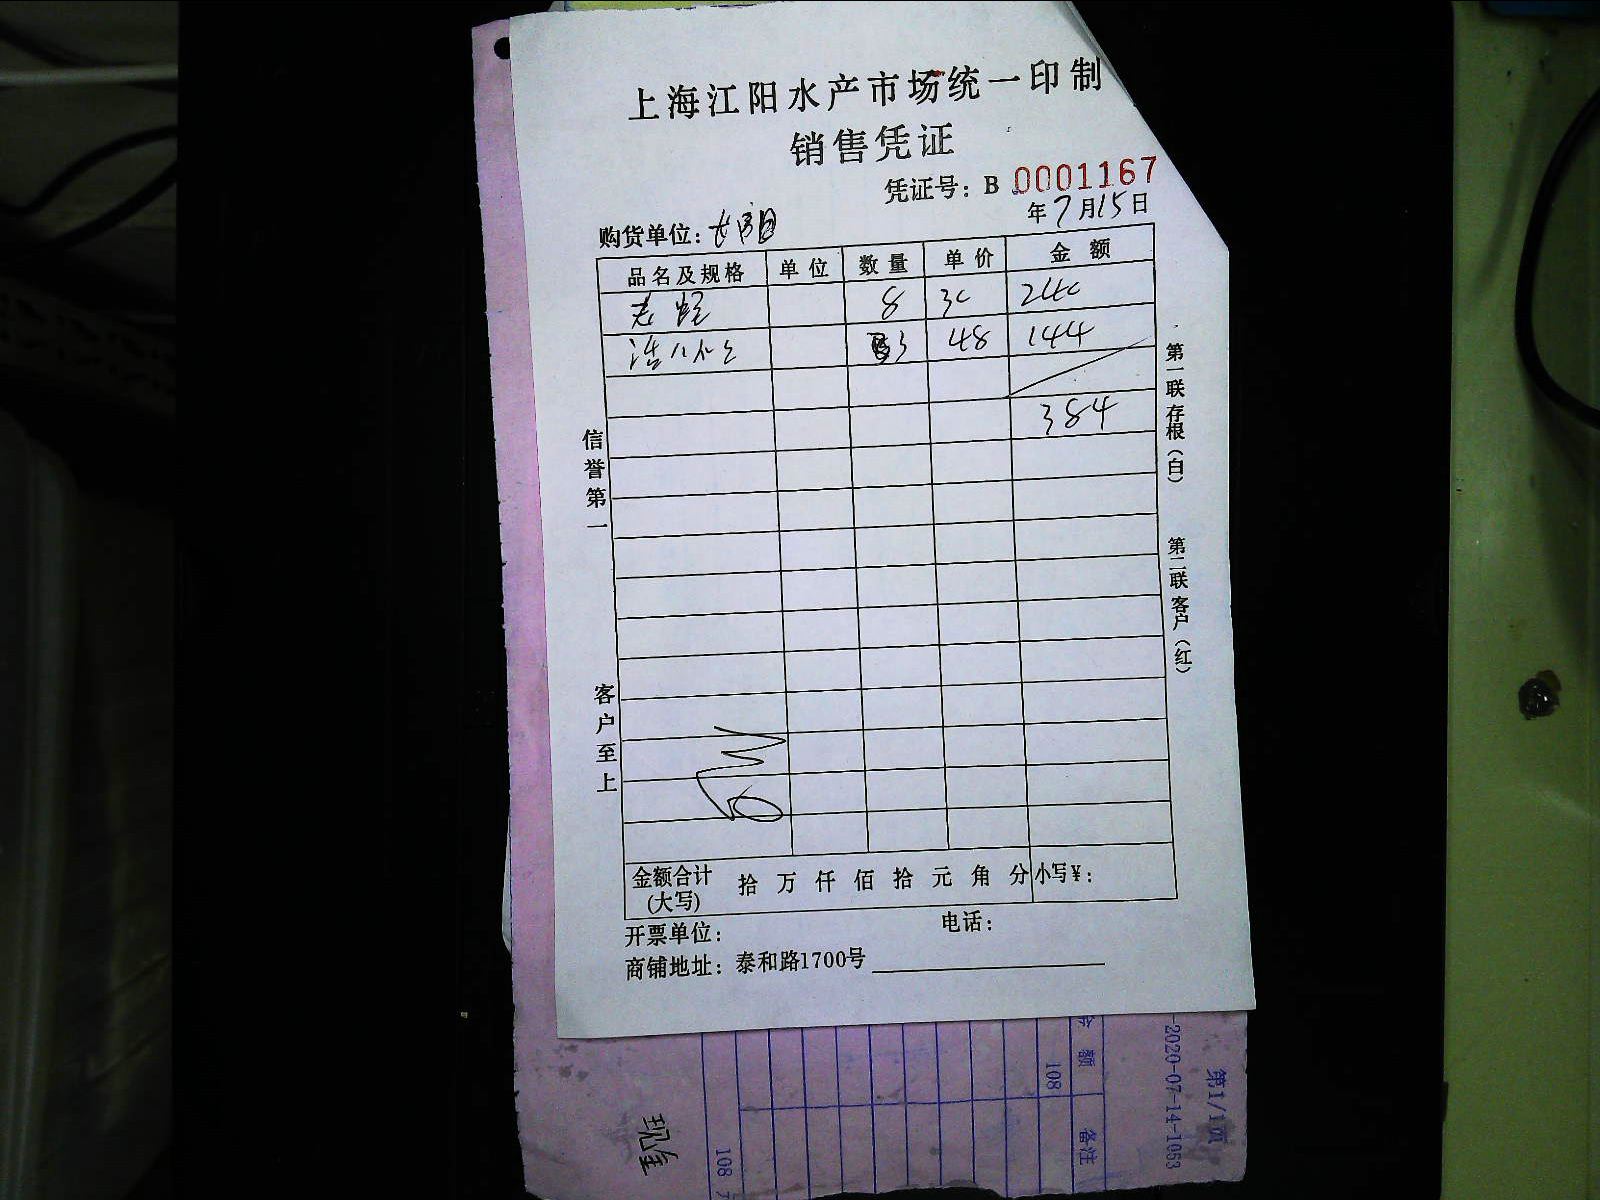 上海江阳水产市场统一印制
销售凭证
凭证号：B 0001167
年7月15日
购货单位：
品名及规格 单位 数量 单价 金额
8 30 240
3 48 144
384
信誉第一
客户至上
第一联存根（白）
第二联客户（红）
金额合计（大写） 拾 万 仟 佰 拾 元 角 分 小写¥：
开票单位： 电话：
商铺地址：泰和路1700号
第1/1页
-2020-07-14-1053
金额 备注
108
108
现金